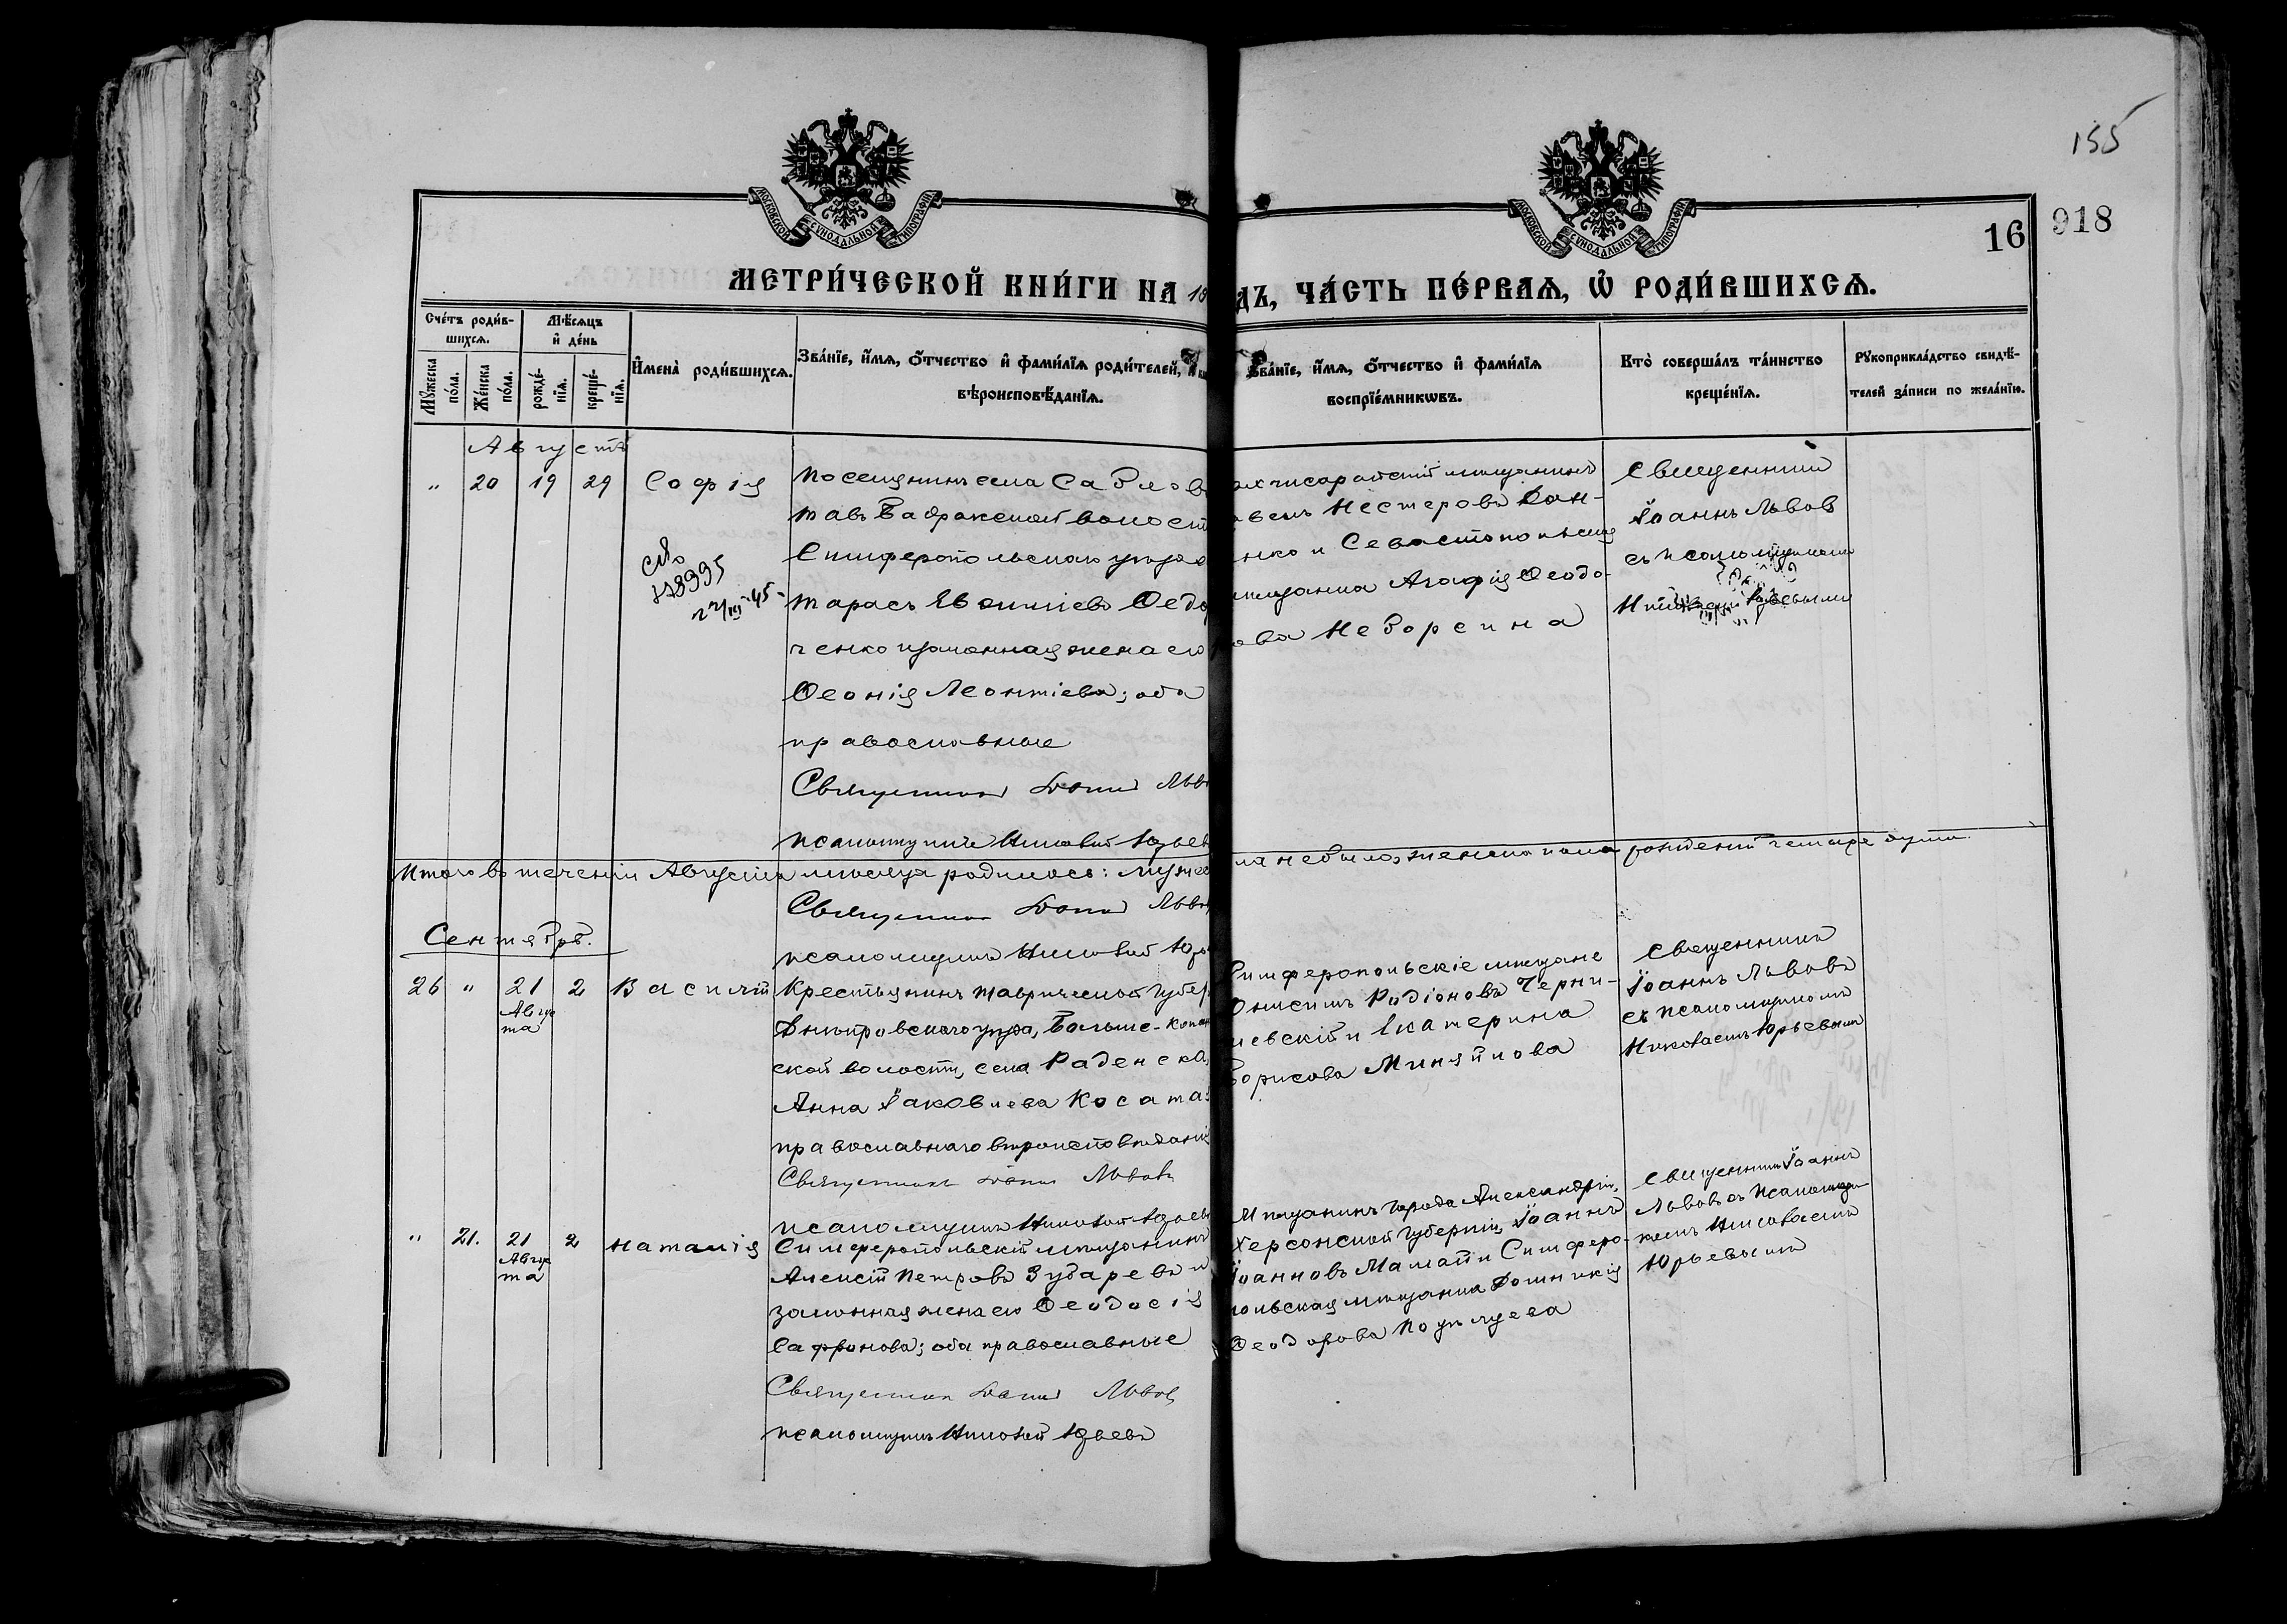 155
918
16
МОСКОВСКОЙ СУНОДАЛЬНОЙ ТИПОГРАФІИ
МОСКОВСКОЙ СУНОДАЛЬНОЙ ТИПОГРАФІИ
МЕТРИ́ЧЕСКОЙ КНИ́ГИ НА 18
ДЪ, ЧА́СТЬ ПЕ́РВАѦ, Ѡ҆ РОДИ́ВШИХСѦ.
Сче́тъ роди́в-
шихсѧ.
Мѣ́сѧцъ
и҆ де́нь
Мꙋ́жеска
по́ла.
Же́нска
по́ла.
рожде́-
нїѧ.
креще́-
нїѧ.
И҆мена̀ роди́вшихсѧ.
Зва́нїе, и҆́мѧ, ѻ҆́тчество и҆ фами́лїѧ роди́телей,
вѣроисповѣ́данїѧ.
Зва́нїе, и҆́мѧ, ѻ҆́тчество и҆ фами́лїѧ
воспрїе́мникѡвъ.
Кто̀ соверша́лъ та́инство
креще́нїѧ.
Рꙋкоприкла́дство свидѣ́-
телей за́писи по жела́нїю.
Августъ
" 20 19 29 Софія
поселянинъ села Саблов
тавъ Бадракской волост
Симферопольскаго уѣзда
Тарасъ Евтиміевъ Федо
ченко и законная жена его
Ѳеонія Леонтіева; оба
православные
Священникъ Іоаннъ Льво
псаломщикъ Николай Юрьев
178995
хчисарайскій мѣщанинъ
Нестеровъ Дон-
нко и Севастопольская
мѣщанка Агафія Ѳеодо-
ова Неворсина
Священникъ
Іоаннъ Львовъ
съ псаломщикомъ
Итого въ теченіи Августа мѣсяца родилось: мужес
ла не было, женскаго пола рожденій четыре души.
Священникъ Іоаннъ Львов
псаломщикъ Николай Юрь
Сентябрь.
26 " 21 2 Василій
Авгус
та
Крестьянинъ Таврической Губер
Днѣпровскаго уѣзда, Больше-Копан
ской волости, села Раденска
Анна Іаковлева Косата
православнаго вѣроисповѣданія
Священникъ Іоаннъ Львовъ
псаломщикъ Николай Юрьев
Симферопольскіе мѣщане
Онисимъ Родіоновъ Черни-
евскій и Екатерина
Борисова Миняйлова
Священникъ
Іоаннъ Львовъ
съ псаломщикомъ
Николаемъ Юрьевымъ
" 21. 21 2 Наталія
Авгус
та
Симферопольскій мѣщанинъ
Алексій Петровъ Зубаревъ и
законная жена его Ѳеодосія
Сафронова; оба православные
Священникъ Іоаннъ Львовъ
псаломщикъ Николай Юрьевъ
Мѣщанинъ города Александріи,
Херсонской Губерніи, Іоаннъ
Іоанновъ Малай и Симферо-
польская мѣщанка Домникія
Ѳеодорова
Священникъ Іоаннъ
Львовъ съ псаломщи-
комъ Николаемъ
Юрьевымъ